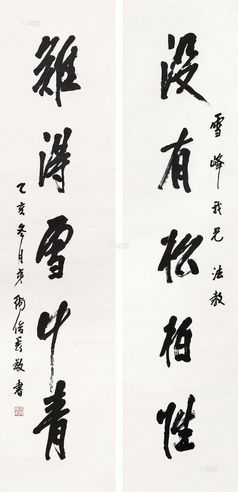 没有松柏性
雪峰我兄 法教
难得雪中青
乙亥冬月